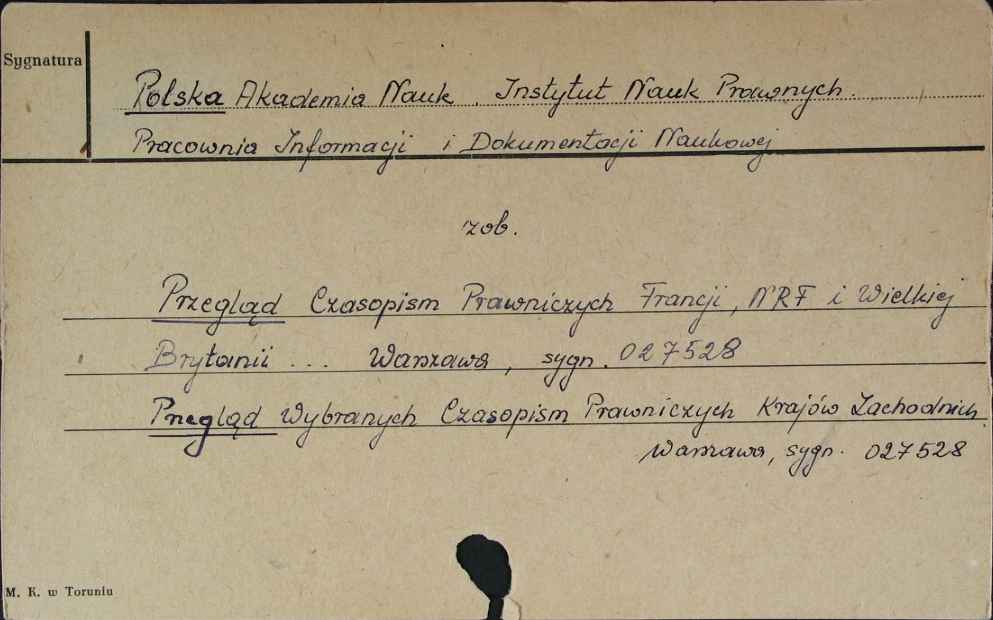 Sygnatura
Polska Akademia Nauk. Instytut Nauk Prawnych.
Pracownia Informacji i Dokumentacji Naukowej
zob.
Przegląd Czasopism Prawniczych Francji, NRF i Wielkiej
Brytanii ... Warszawa, sygn. 027528
Przegląd Wybranych Czasopism Prawniczych Krajów Zachodnich.
Warszawa, sygn. 027528
M. K. w Toruniu